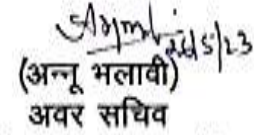 26/5/23
(अन्नू भलावी)
अवर सचिव